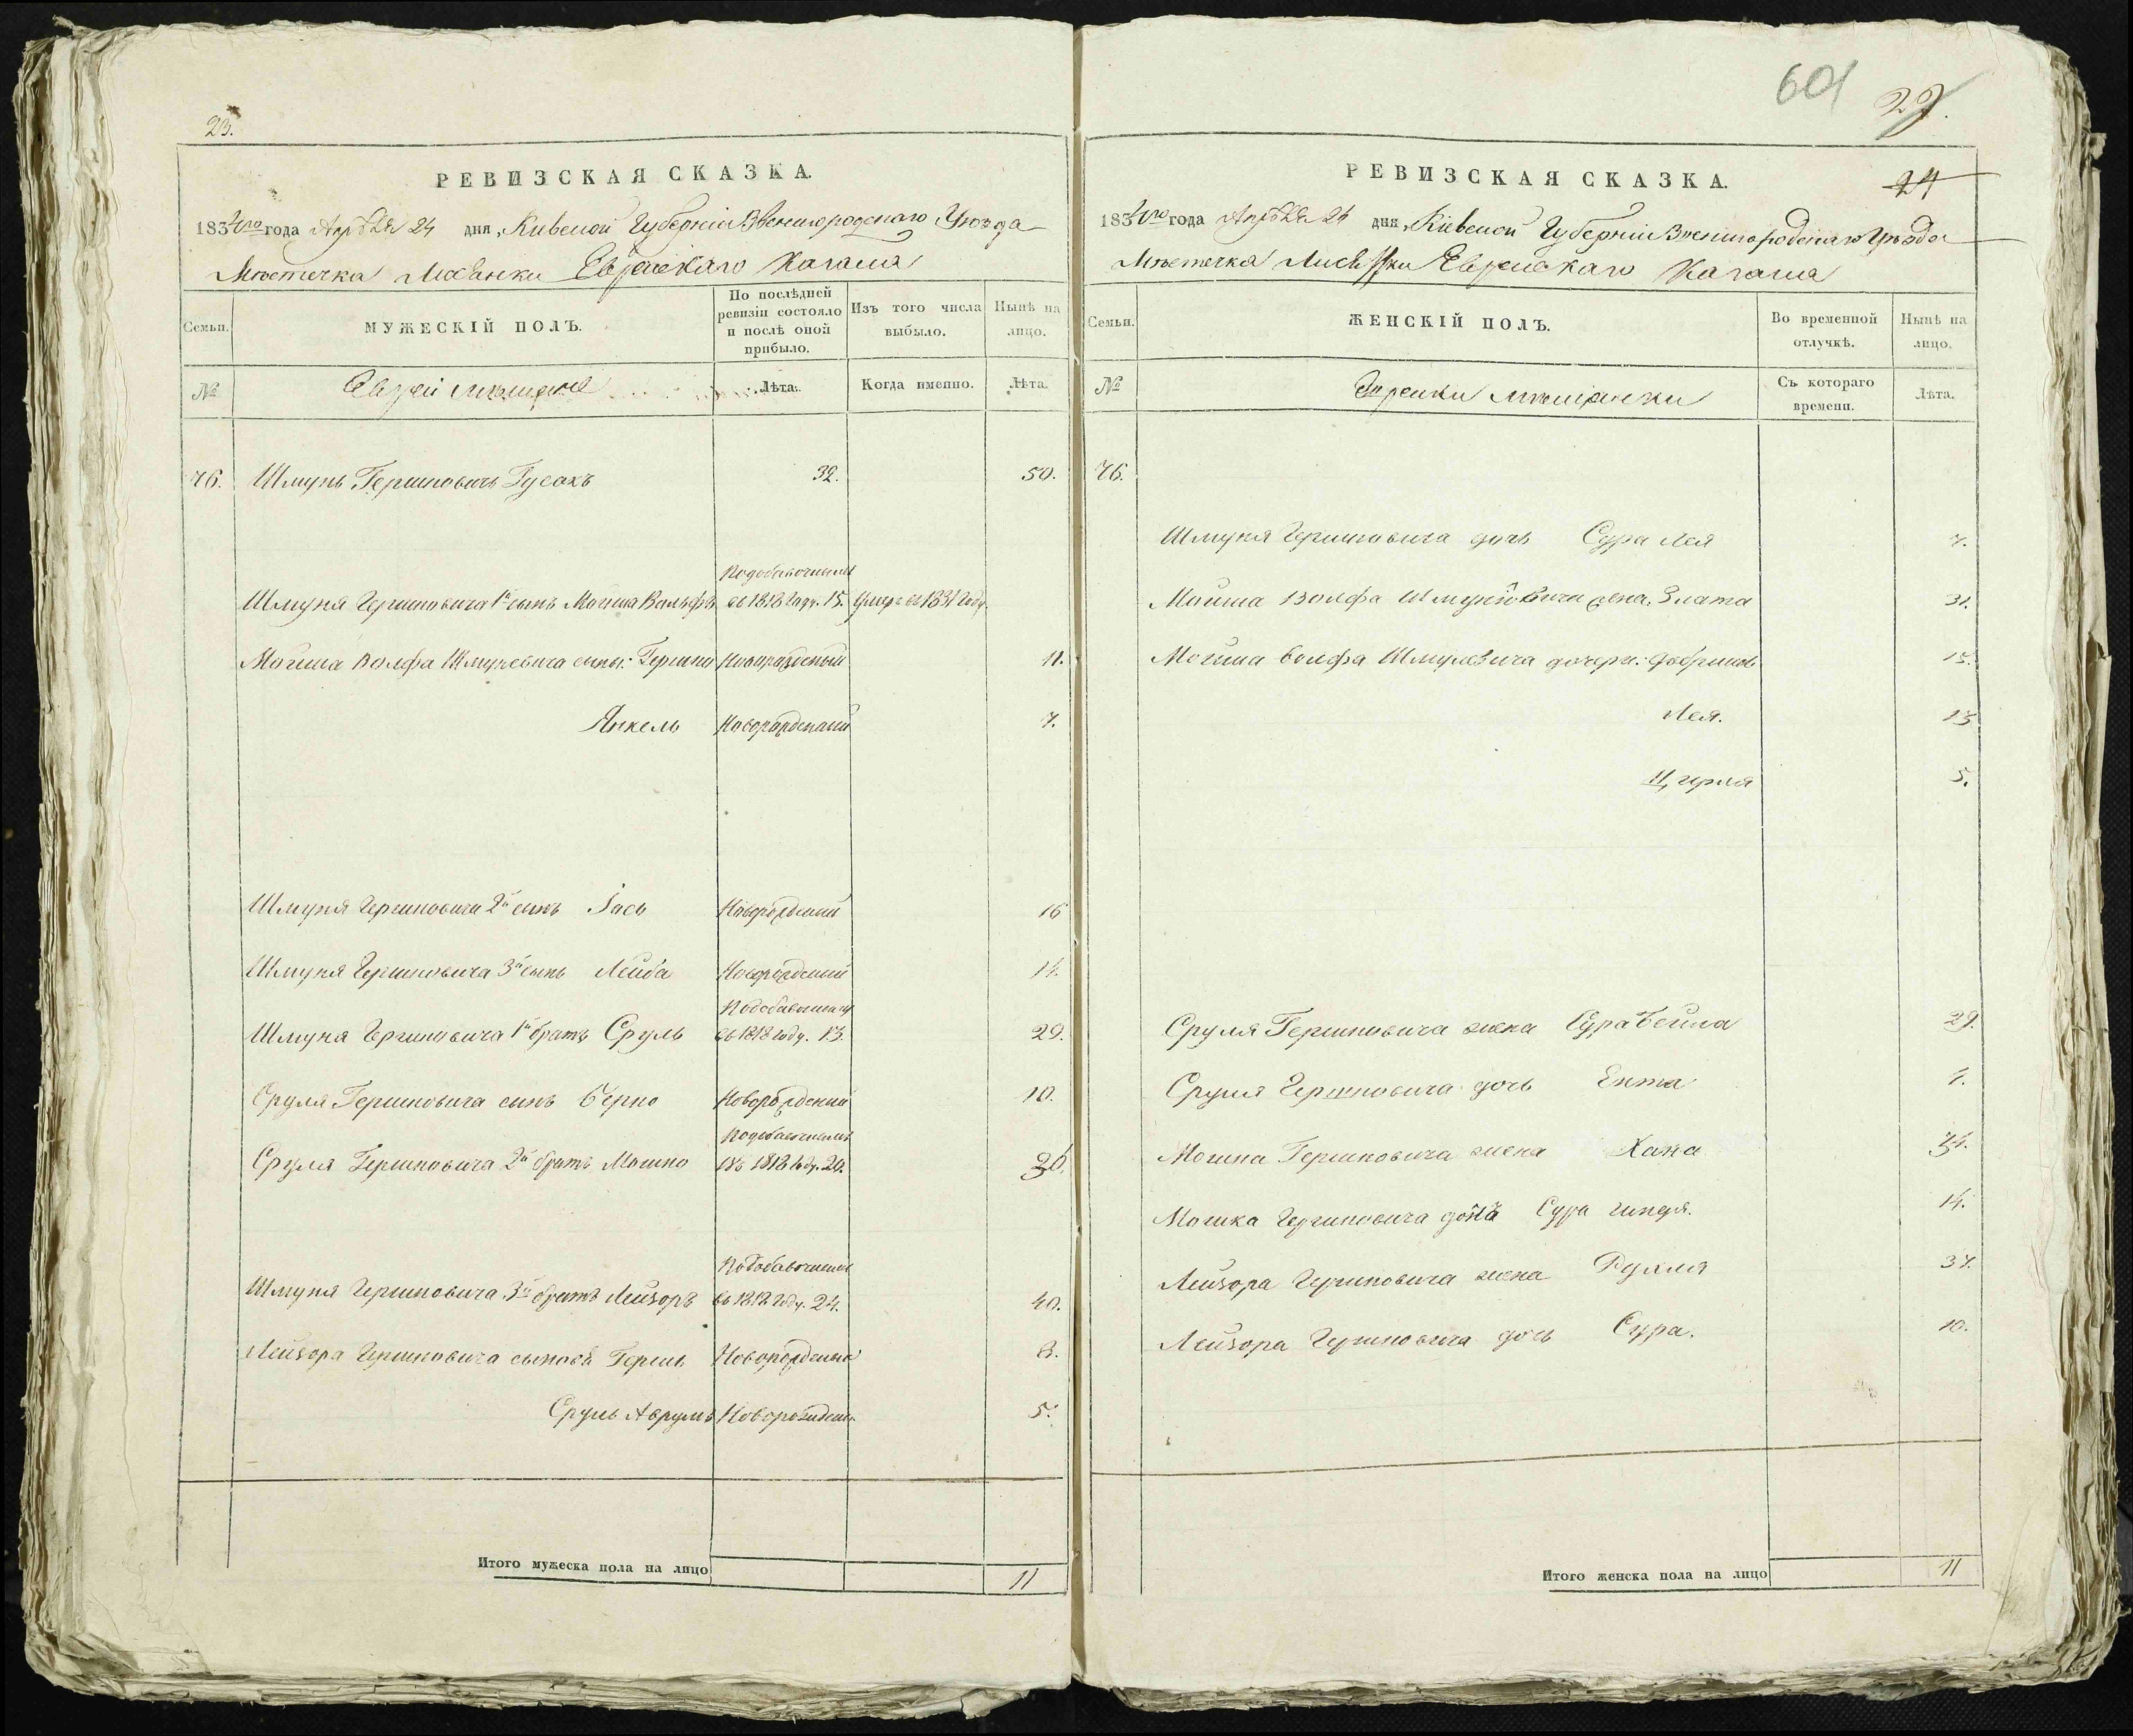 23.
РЕВИЗСКАЯ СКАЗКА.
1834го года Апрѣля 24 дня, Киевской Губерніи Звенигородскаго Уѣзда
Мѣстечка Лисянки Еврейскаго Кагала
Семьи.
МУЖЕСКІЙ ПОЛЪ.
По послѣдней ревизіи состояло и послѣ оной прибыло.
Изъ того числа выбыло.
Нынѣ на лицо.
№
Евреи мѣщане
Лѣта.
Когда именно.
Лѣта.
76. Шмунь Гершковичъ Гусакъ 32. 50.
Подобавочнымъ
Шмуня Гершковича 1й сынъ Мошка Вольфъ въ 1818 году. 15. Умеръ въ 1831 году.
Мошка Волфа Шмулевича сыны: Гершко Новорожденый 11.
Янкель Новорожденый 7.
Шмуня Гершковича 2й сынъ Іось Новорожденый 16
Шмуня Гершковича 3й сынъ Лейба Новорожденый 14.
Подобавочному
Шмуня Гершковича 1й братъ Сруль въ 1818 году. 13. 29.
Сруля Гершковича сынъ Берко Новорожденый 10.
Подобавочнымъ
Сруля Гершковича 2й братъ Мошко въ 1818 году. 20. 36.
Подобавочнымъ
Шмуня Гершковича 3й братъ Лейзоръ въ 1818 году. 24. 40.
Лейзора Гершковича сыновя Гершь Новорожденые 8.
Сруль Аврумъ Новорожден. 5.
Итого мужеска пола на лицо 11
601
29.
24
РЕВИЗСКАЯ СКАЗКА.
1834го года Апрѣля 24 дня, Кіевской Губерніи Звенигородскаго Уѣзда
Мѣстечка Лисянки Еврейскаго Кагала
Семьи.
ЖЕНСКІЙ ПОЛЪ.
Во временной отлучкѣ.
Нынѣ на лицо.
№
Еврейки мѣщанки
Съ котораго времени.
Лѣта.
76.
Шмуня Гершковича дочь Сура Лея 7.
Мошка Волфа Шмунковича жена Злата 31.
Мошка Волфа Шмулевича дочери: Двбришъ 15.
Лея. 13
Цирля 5.
Сруля Гершковича жена Сура Бейла 29.
Сруля Гершковича дочь Ента 1.
Мошка Гершковича жена Хана 34.
Мошка Гершковича дочь Сура гинда. 14.
Лейзора Гершковича жена Рухля 37.
Лейзора Гершковича дочь Сура. 10.
Итого женска пола на лицо 11